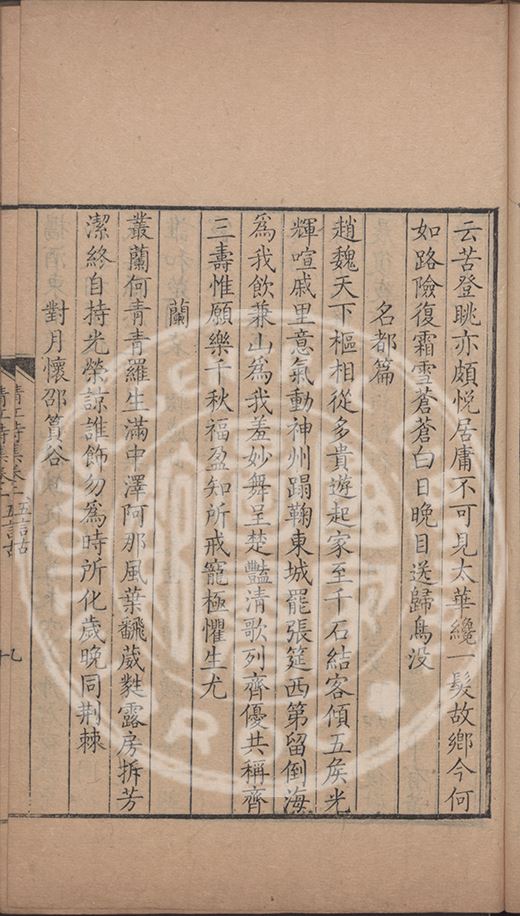 云苦登眺亦頗悅居庸不可見太華纔一髮故鄉今何
如路險復霜雪蒼蒼白日晚目送歸鳥没
名都篇
趙魏天下樞相從多貴遊起家至千石結客傾五侯光
輝喧戚里意氣動神州蹋鞠東城罷張筵西第留倒海
為我飲兼山為我羞妙舞呈楚豔清歌列齊優共稱齊
三壽惟願樂千秋福盈知所戒寵極懼生尤
蘭
叢蘭何青青羅生滿中澤阿那風葉翻葳蕤露房拆芳
潔終自持光榮諒誰飾勿為時所化歲晚同荆棘
對月懷邵篔谷
九